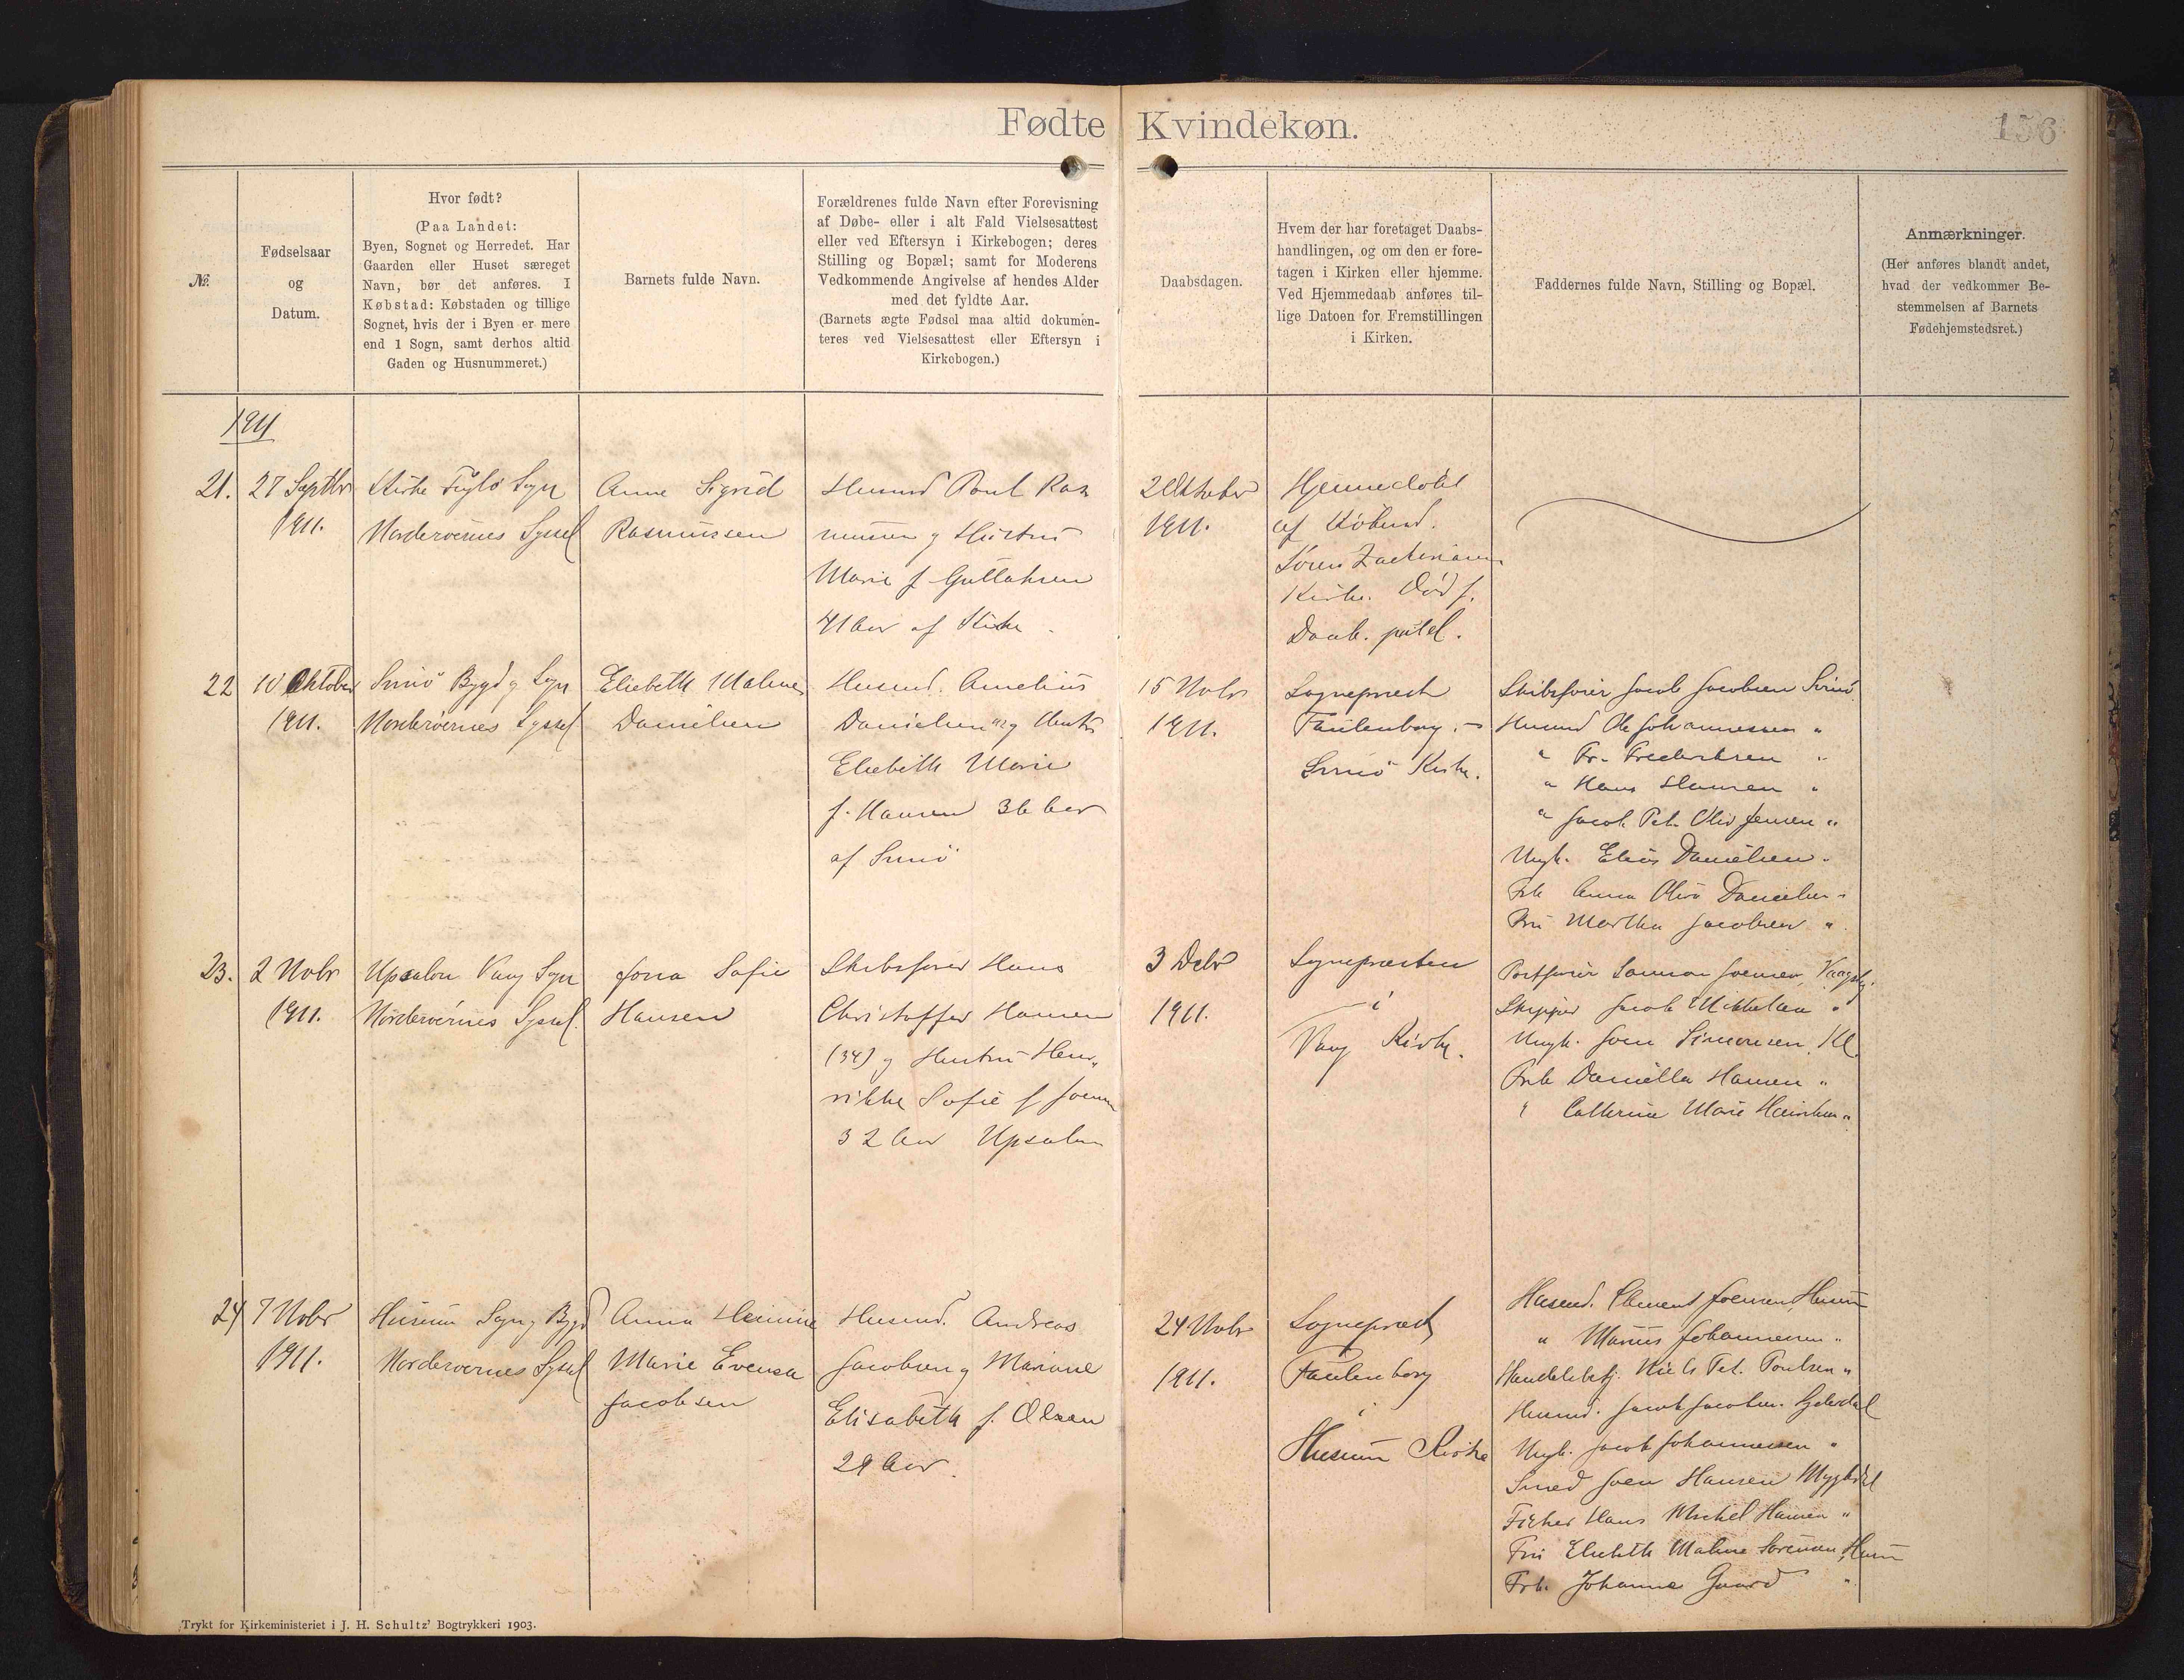 Fødte Kvindekøn.
156
№
Fødselsaar
og
Datum.
Hvor født?
(Paa Landet:
Byen, Sognet og Herredet. Har
Gaarden eller Huset særeget
Navn, bør det anføres. I
Købstad: Købstaden og tillige
Sognet, hvis der i Byen er mere
end 1 Sogn, samt derhos altid
Gaden og Husnummeret.)
Barnets fulde Navn.
Forældrenes fulde Navn efter Forevisning
af Døbe- eller i alt Fald Vielsesattest
eller ved Eftersyn i Kirkebogen; deres
Stilling og Bopæl; samt for Moderens
Vedkommende Angivelse af hendes Alder
med det fyldte Aar.
(Barnets ægte Fødsel maa altid dokumen-
teres ved Vielsesattest eller Eftersyn i
Kirkebogen.)
Daabsdagen.
Hvem der har foretaget Daabs-
handlingen, og om den er fore-
tagen i Kirken eller hjemme.
Ved Hjemmedaab anføres til-
lige Datoen for Fremstillingen
i Kirken.
Faddernes fulde Navn, Stilling og Bopæl.
Anmærkninger.
(Her anføres blandt andet,
hvad der vedkommer Be-
stemmelsen af Barnets
Fødehjemstedsret.)
1911
21.
27 Septbr
1911.
Kirke Fuglø Sogn
Norderøernes Syssel
Anne Sigrid
Rasmussen
Husmd Poul Ras
mussen og Hustru
Marie f Guttormsen
41 Aar af Kirke
2 Oktober
1911.
Hjemmedøbt
af Købmd.
Søren Zachariasen
Kirke. Død f.
Daab. patel.
22
10 Oktober
1911.
Svinø Bygd og Sogn
Norderøernes Syssel
Elsebeth Malene
Danielsen
Husmd. Amelius
Danielsen og Hustru
Elsebeth Marie
f. Hansen 36 Aar
af Svinø
15 Nobr
1911.
Sognepræst
Faulenborg i
Svinø Kirke.
Skibsfører Jacob Jacobsen Svinø
Husmd Ole Johannessen "
" Fr. Frederiksen "
" Hans Hansen "
" Jacob Pet. Oliv Jensen "
Ungk. Elias Danielsen "
Frk Anna Olivia Danielsen "
Fru Martha Jacobsen "
23.
2 Nobr
1911.
Upsalon Vaag Sogn
Norderøernes Syssel.
Jona Sofie
Hansen
Skibsfører Hans
Christoffer Hansen
(34) og Hustru Hen
rikke Sofie f Joensen
32 Aar Upsalon
3 Debr
1911.
Sognepræsten
i
Vaag Kirke.
Postfører Samson Joensen, Vaagsby.
Skipper Jacob Mikkelsen "
Ungk. Joen Simonsen, Kl.
Frk Daniella Hansen "
" Cathrine Marie "
24
7 Nobr
1911.
Husum Sogn og Bygd
Norderøernes Syssel
Anna Hermine
Marie Evensa
Jacobsen
Husmd. Andreas
Jacobsen og Mariane
Elisabeth f. Olsen
29 Aar.
24 Nobr
1911.
Sognepræst
Faulenborg
i
Husum Kirke
Husmd. Clement Joensen, Husum
" Marius Johannesen "
Handelsbetj. Niels Pet. Poulsen "
Husmd. Jacob Jacobsen
Ungk. Jacob Johannesen "
Smed Joen Hansen Mygledal
Fisker Hans Michel Hansen "
Fru Elsebeth Malene Sørensen, Husum
Frk. Johanne Gaard "
Trykt for Kirkeministeriet i J. H. Schultz' Bogtrykkeri 1903.